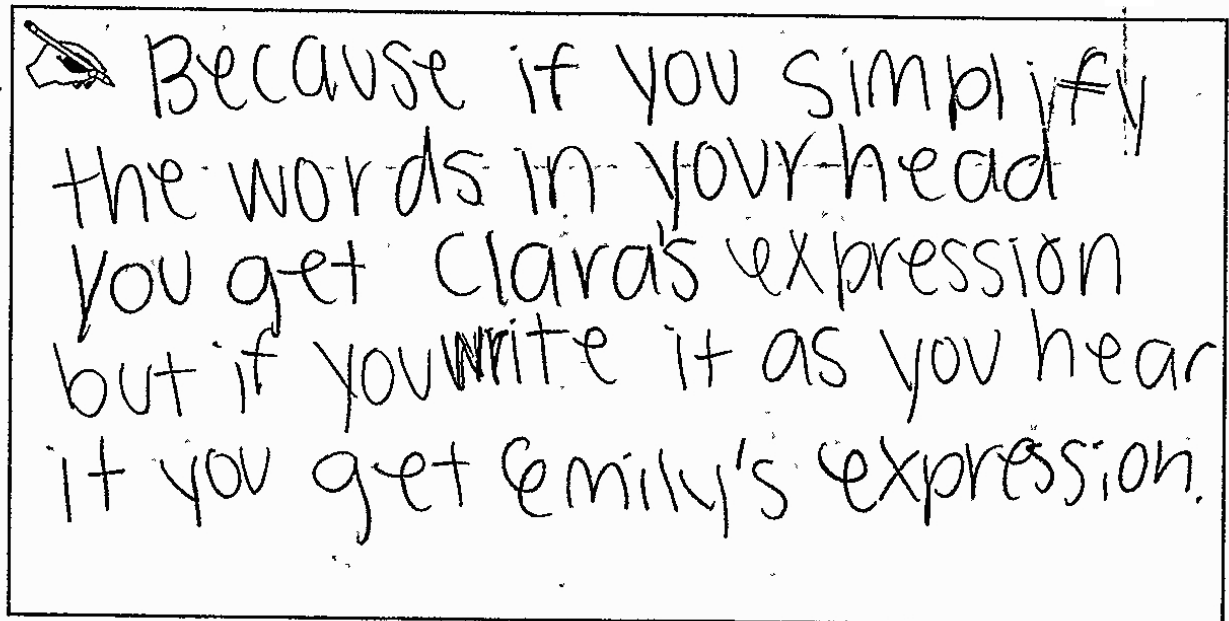 Because if you simplify
the words in your head
you get Clara's expression
but if you write it as you hear
it you get Emily's expression.